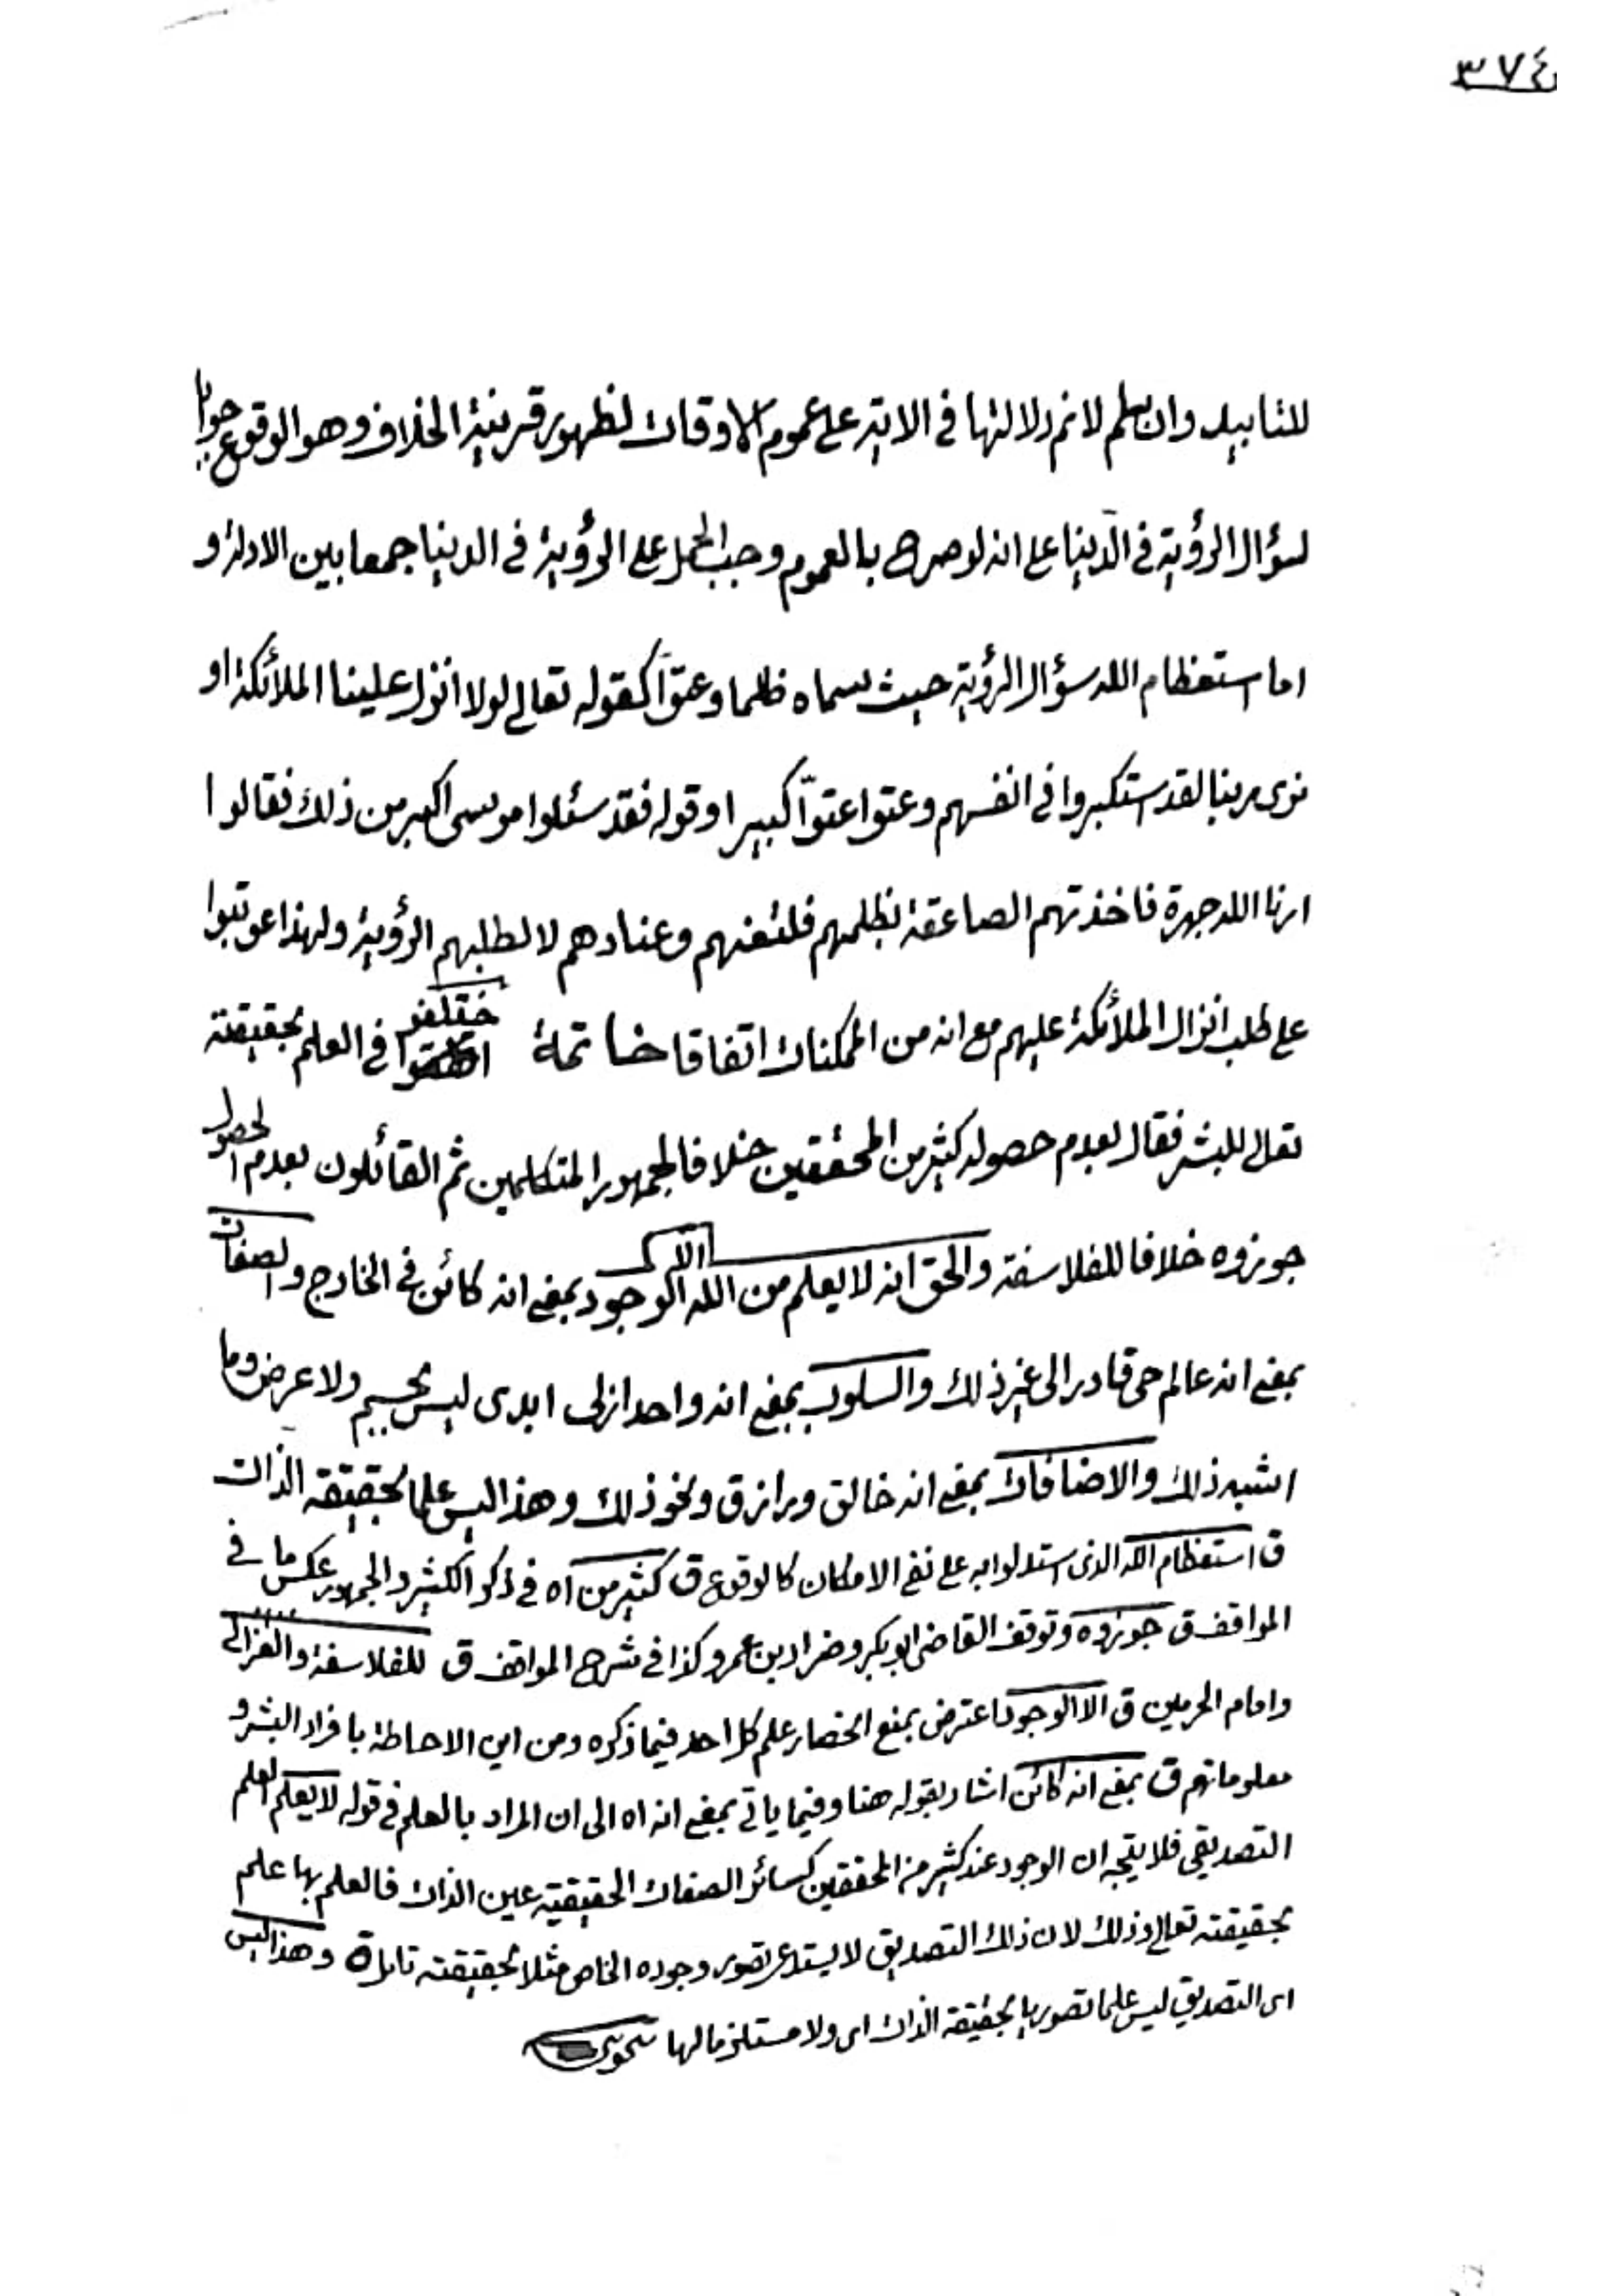 ٣٧٤
للتابيد وان سلم لانم دلالتها في الاية على عموم الاوقات لظهور قرينة الخلاف وهو الوقوع جوابا
لسؤال الرؤية في الدنيا على انه لو صرح بالعموم وجب الحمل على الرؤية في الدنيا جمعا بين الادلة و
اما استعظام الله سؤال الرؤية حيث سماه ظلما وعتوّا كقوله تعالى لولا انزل علينا الملائكة او
نرى ربنا لقد استكبروا في انفسهم وعتوا عتوّا كبيرا وقوله فقد سئلوا موسى اكبر من ذلك فقالوا
ارنا الله جهرة فاخذتهم الصاعقة بظلمهم فلتعنتهم وعنادهم لا لطلبهم الرؤية ولهذا عوتبوا
على طلب انزال الملائكة عليهم مع انه من الممكنات اتفاقا خاتمة اختلفوا في العلم بحقيقته
تعالى للبشر فقال بعدم حصوله كثير من المحققين خلافا لجمهور المتكلمين ثم القائلون بعدم الحصول
جوزوه خلافا للفلاسفة والحق انه لا يعلم من الله الا الوجود بمعنى انه كائن في الخارج والصفات
بمعنى انه عالم حي قادر الى غير ذلك والسلوب بمعنى انه واحد ازلى ابدى ليس بجسم ولا عرض وما
اشبه ذلك والاضافات بمعنى انه خالق ورازق ونحو ذلك وهذا ليس علما بحقيقة الذات
ق استعظام الله الذى استدلوا به على نفي الامكان كالوقوع ق كثير من اه في ذكر الكثير والجمهور عكس ما في
المواقف ق جوزوه وتوقف القاضى ابو بكر وضرار بن عمرو كذا في شرح المواقف ق للفلاسفة والغزالى
وامام الحرمين ق الا الوجود اعترض بمنع انحصار علم كل احد فيما ذكره ومن اين الاحاطة بافراد البشر و
معلوماتهم ق بمعنى انه كائن اشار بقوله هنا وفيما ياتي بمعنى انه اه الى ان المراد بالعلم في قوله لا يعلم العلم
التصديقي فلا يتجه ان الوجود عند كثير من المحققين كسائر الصفات الحقيقية عين الذات فالعلم بها علم
بحقيقته تعالى وذلك لان ذلك التصديق لا يستدعى تصور وجوده الخاص مثلا بحقيقته تامل ق وهذا ليس
اى التصديق ليس علما تصوريا بحقيقة الذات اى ولا مستلزما لها